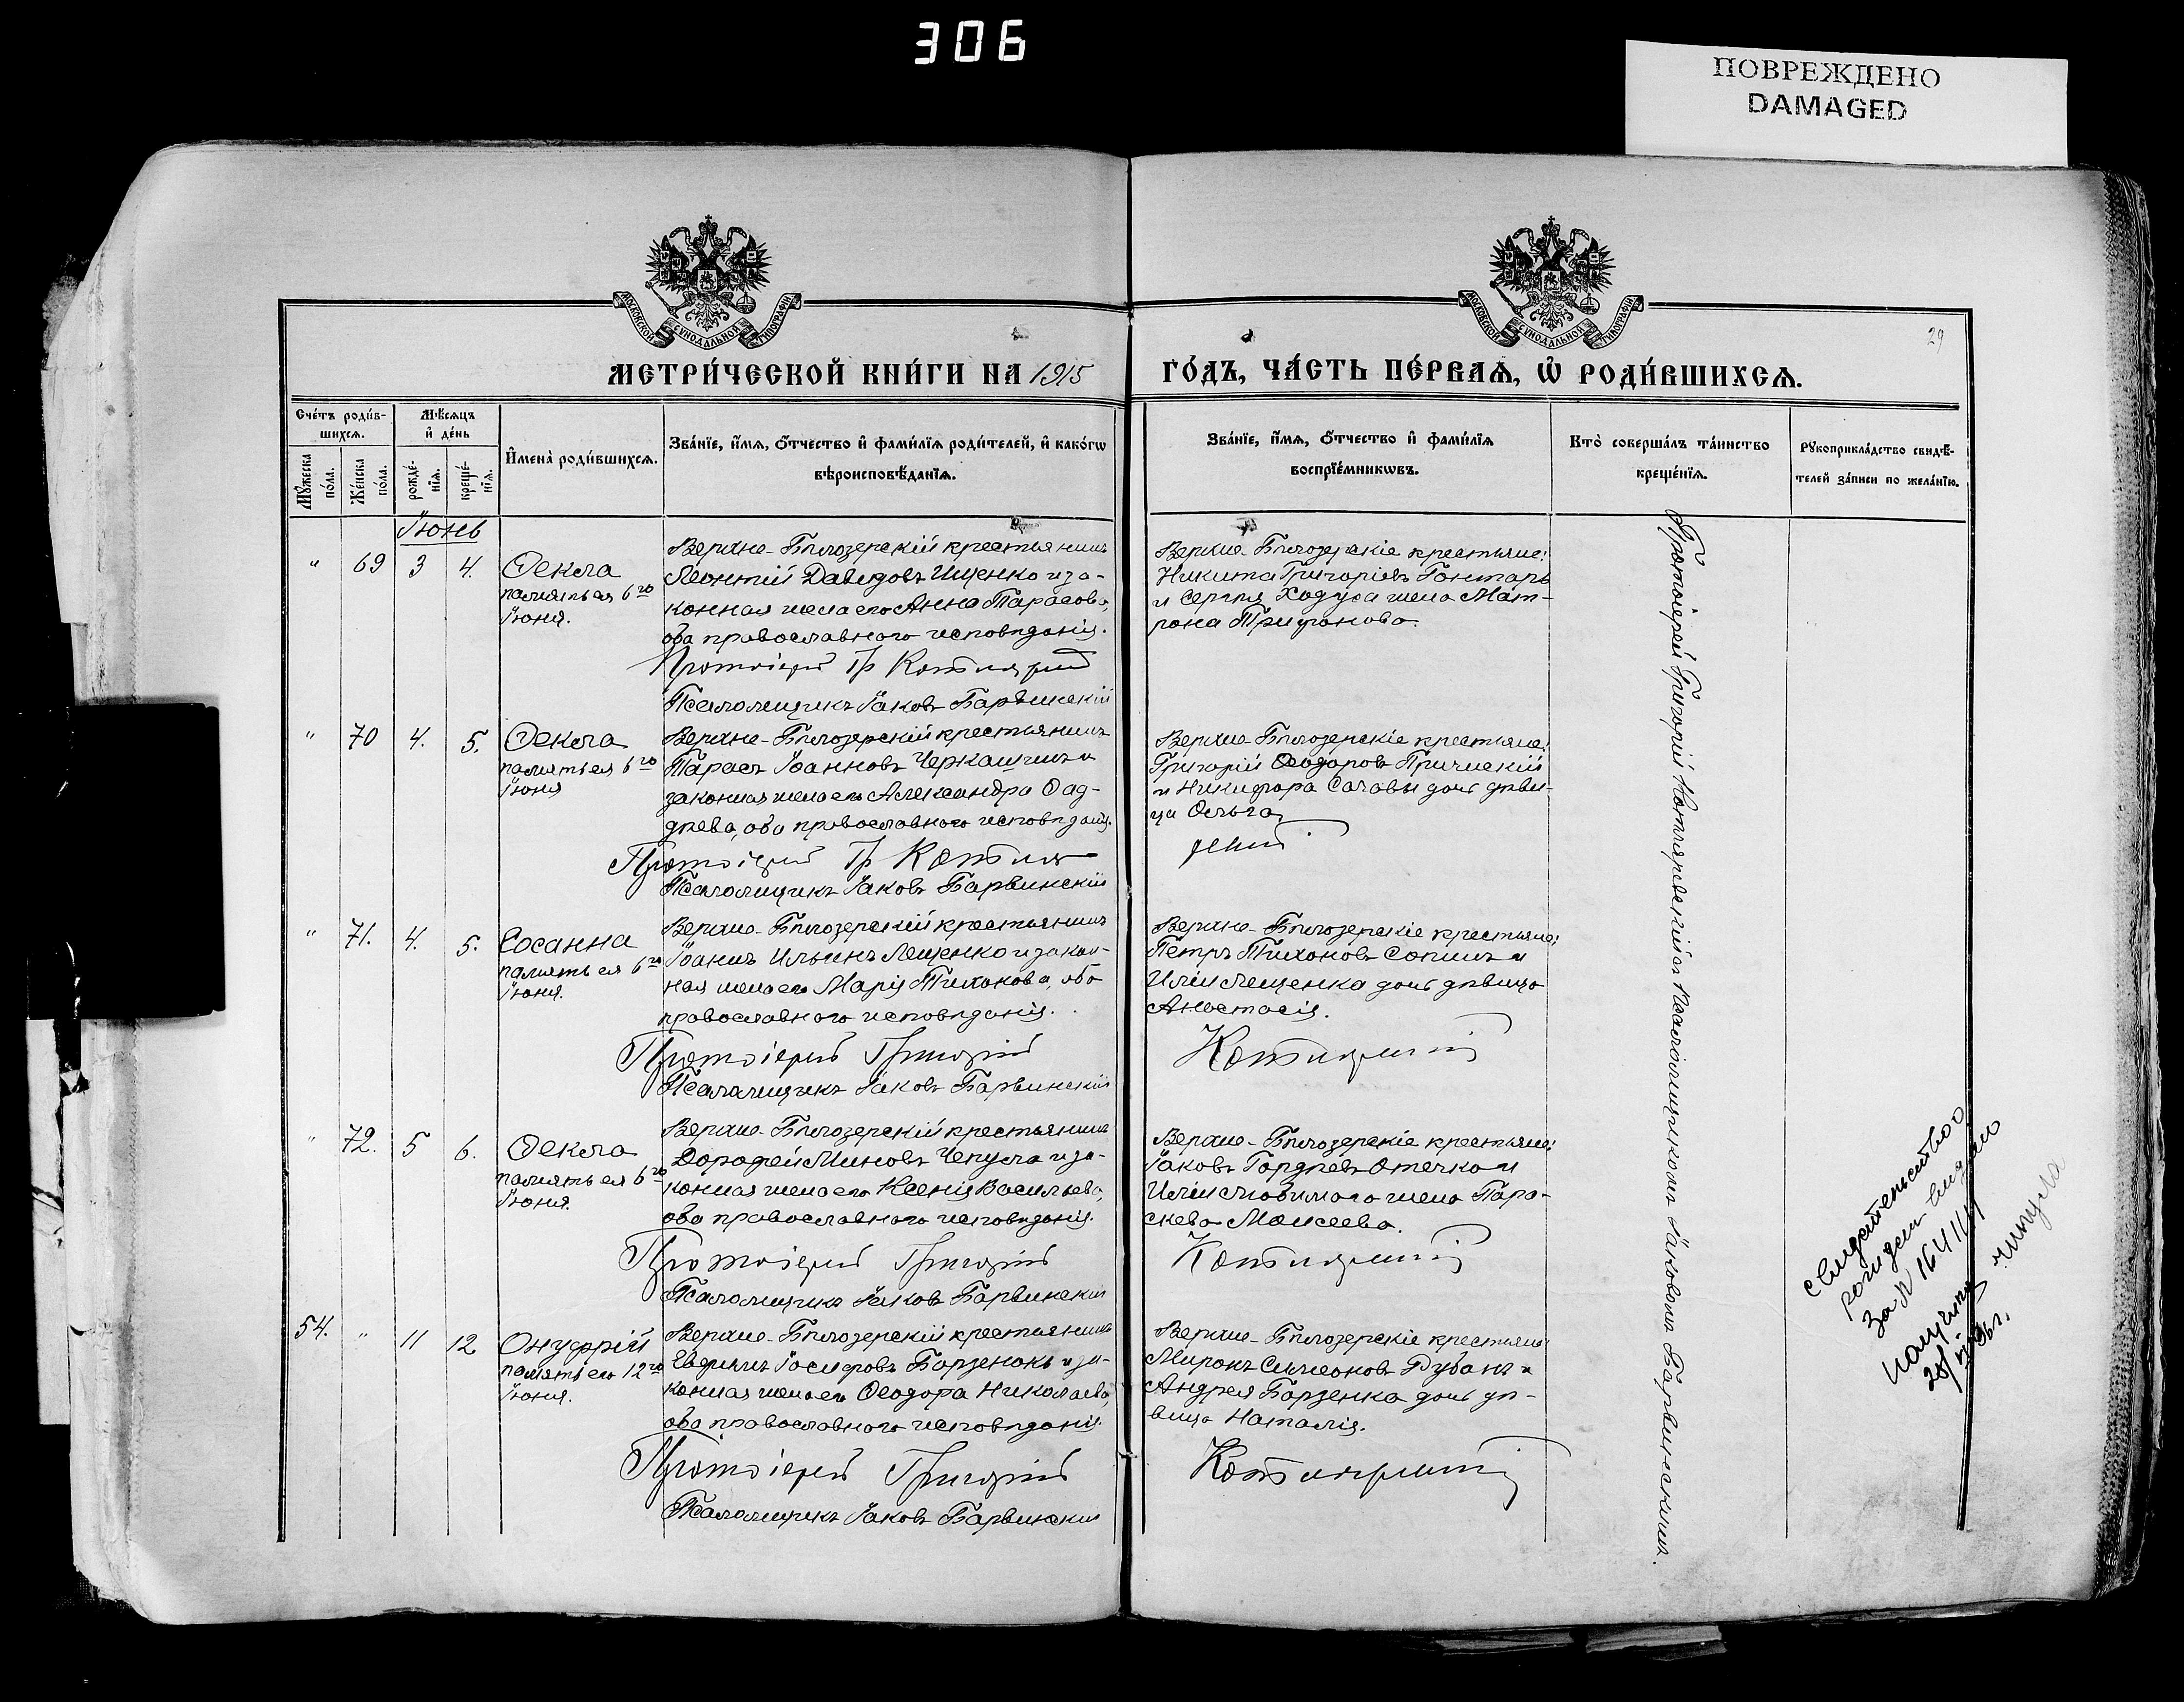 306
ПОВРЕЖДЕНО
DAMAGED
МОСКОВСКОЙ СѴНОДАЛЬНОЙ ТИПОГРАФІИ
МОСКОВСКОЙ СѴНОДАЛЬНОЙ ТИПОГРАФІИ
29
МЕТРИ́ЧЕСКОЙ КНИ́ГИ НА 1915 ГО́ДЪ, ЧА́СТЬ ПЕ́РВАѦ, Ѡ҆ РОДИ́ВШИХСѦ.
Сче́тъ роди́в-
шихсѧ.
Мꙋ́жеска
по́ла.
Же́нска
по́ла.
Мѣ́сѧцъ
и҆ де́нь
рожде́-
нїѧ.
креще́-
нїѧ.
И҆мена̀ роди́вшихсѧ.
Зва́нїе, и҆́мѧ, ѻ҆́тчество и҆ фами́лїѧ роди́телей, и҆ како́гѡ
вѣроисповѣ́данїѧ.
Зва́нїе, и҆́мѧ, ѻ҆́тчество и҆ фами́лїѧ
воспрїе́мникѡвъ.
Кто̀ соверша́лъ та́инство
креще́нїѧ.
Рꙋкоприкла́дство свидѣ́-
телей за́писи по жела́нїю.
Іюнь
" 69 3 4.
Ѳекла
память ея 6го
Іюня.
Верхне-Бѣлозерскій крестьянинъ
Леонтій Давидовъ Ищенко и за-
конная жена его Анна Тарасова,
оба православнаго исповѣданія.
Протоіерей Гр Котляревскій
Псаломщикъ Іаковъ Барвинскій
Верхне-Бѣлозерскіе крестьяне:
Никита Григоріевъ Гонтарь
и Сергѣя Ходуса жена Мат-
рона Трифонова.
" 70 4. 5.
Ѳекла
память ея 6го
Іюня
Верхне-Бѣлозерскій крестьянинъ
Тарасъ Іоанновъ Черкашинъ и
законная жена его Александра Фад-
дѣева, оба православнаго исповѣданія.
Протоіерей Гр Котля
Псаломщикъ Іаковъ Барвинскій
Верхне-Бѣлозерскіе крестьяне:
Григорій Ѳеодоровъ
и Никифора Саловы дочь дѣви-
ца Ольга
" 71. 4. 5.
Сосанна
память ея 6го
Іюня.
Верхне-Бѣлозерскій крестьянинъ
Іоаннъ Ильинъ Лещенко и закон-
ная жена его Марія Тихонова, оба
православнаго исповѣданія.
Протоіерей Григорій
Псаломщикъ Іаковъ Барвинскій
Верхне-Бѣлозерскіе крестьяне:
Петръ Тихоновъ Сопинъ и
Иліи Лещенка дочь дѣвица
Анастасія.
Котляревскій
" 72. 5 6.
Ѳекла
память ея 6го
Іюня.
Верхне-Бѣлозерскій крестьянинъ
Дорофей Миновъ Чепула и за-
конная жена его Ксенія Васильева,
оба православнаго исповѣданія.
Протоіерей Григорій
Псаломщикъ Іаковъ Барвинскій
Верхне-Бѣлозерскіе крестьяне:
Іаковъ Гордѣевъ Отечко и
Иліи Любимаго жена Пара-
скева Моисеева.
Котляревскій
54. " 11 12
Онуфрій
память его 12го
Іюня.
Верхне-Бѣлозерскій крестьянинъ
Евфимъ Іосифовъ Борзенокъ и за-
конная жена его Ѳеодора Николаева,
оба православнаго исповѣданія
Протоіерей Григорій
Псаломщикъ Іаковъ Барвинскій
Верхне-Бѣлозерскіе крестьяне
Миронъ Симеоновъ Рубанъ и
Андрея Борзенка дочь дѣ-
вица Наталія.
Котляревскій
Протоіерей Григорій Котляревскій съ псаломщикомъ Іаковомъ Барвинскимъ.
свидетельство о
рожден выдано
За N